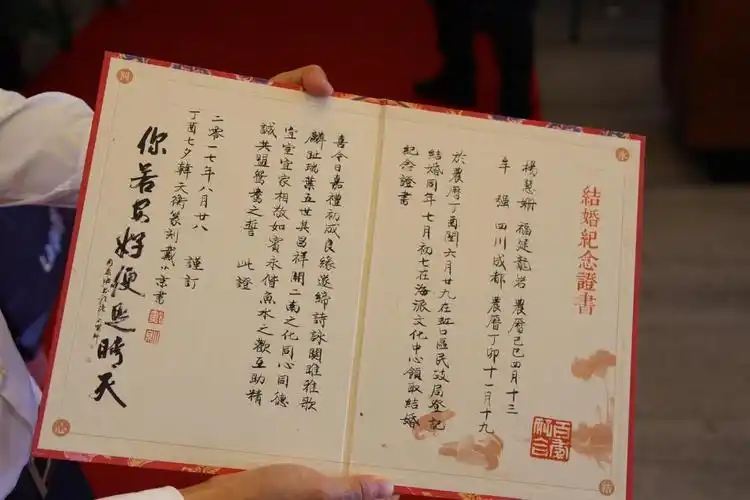 結婚紀念證書
楊慧姍 福建龍岩 農曆己巳四月十三
牟 強 四川成都 農曆丁卯十一月十九
於農曆丁酉閏六月廿九在虹口區民政局登記
結婚同年七月初七在海派文化中心領取結婚
紀念證書
百年好合
喜今日嘉禮初成良緣遂締詩詠關雎雅歌
麟趾瑞葉五世其昌祥開二南之化同心同德
宜室宜家相敬如賓永偕魚水之歡互助精
誠共盟鴛鴦之誓 此證
二零一七年八月廿八 謹訂
丁酉七夕韓天衡篆刻戴小京書
你若安好便是晴天
永
結
同
心